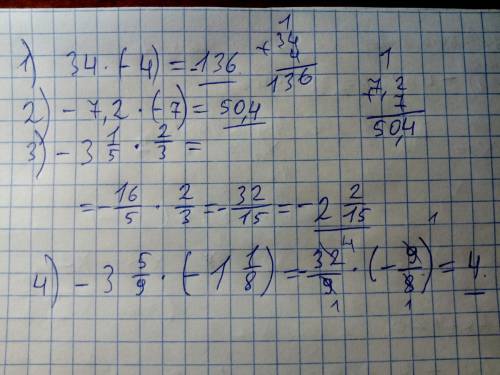 1) 34 · (-4) = -136
1
× 34
4
136
2) - 7,2 · (-7) = 50,4
1
7,2
7
50,4
3) - 3 1/5 · 2/3 =
= - 16/5 · 2/3 = - 32/15 = - 2 2/15
4) - 3 5/9 · (- 1 1/8) = - 32/9 · (- 9/8) = 4
4 1
1 1